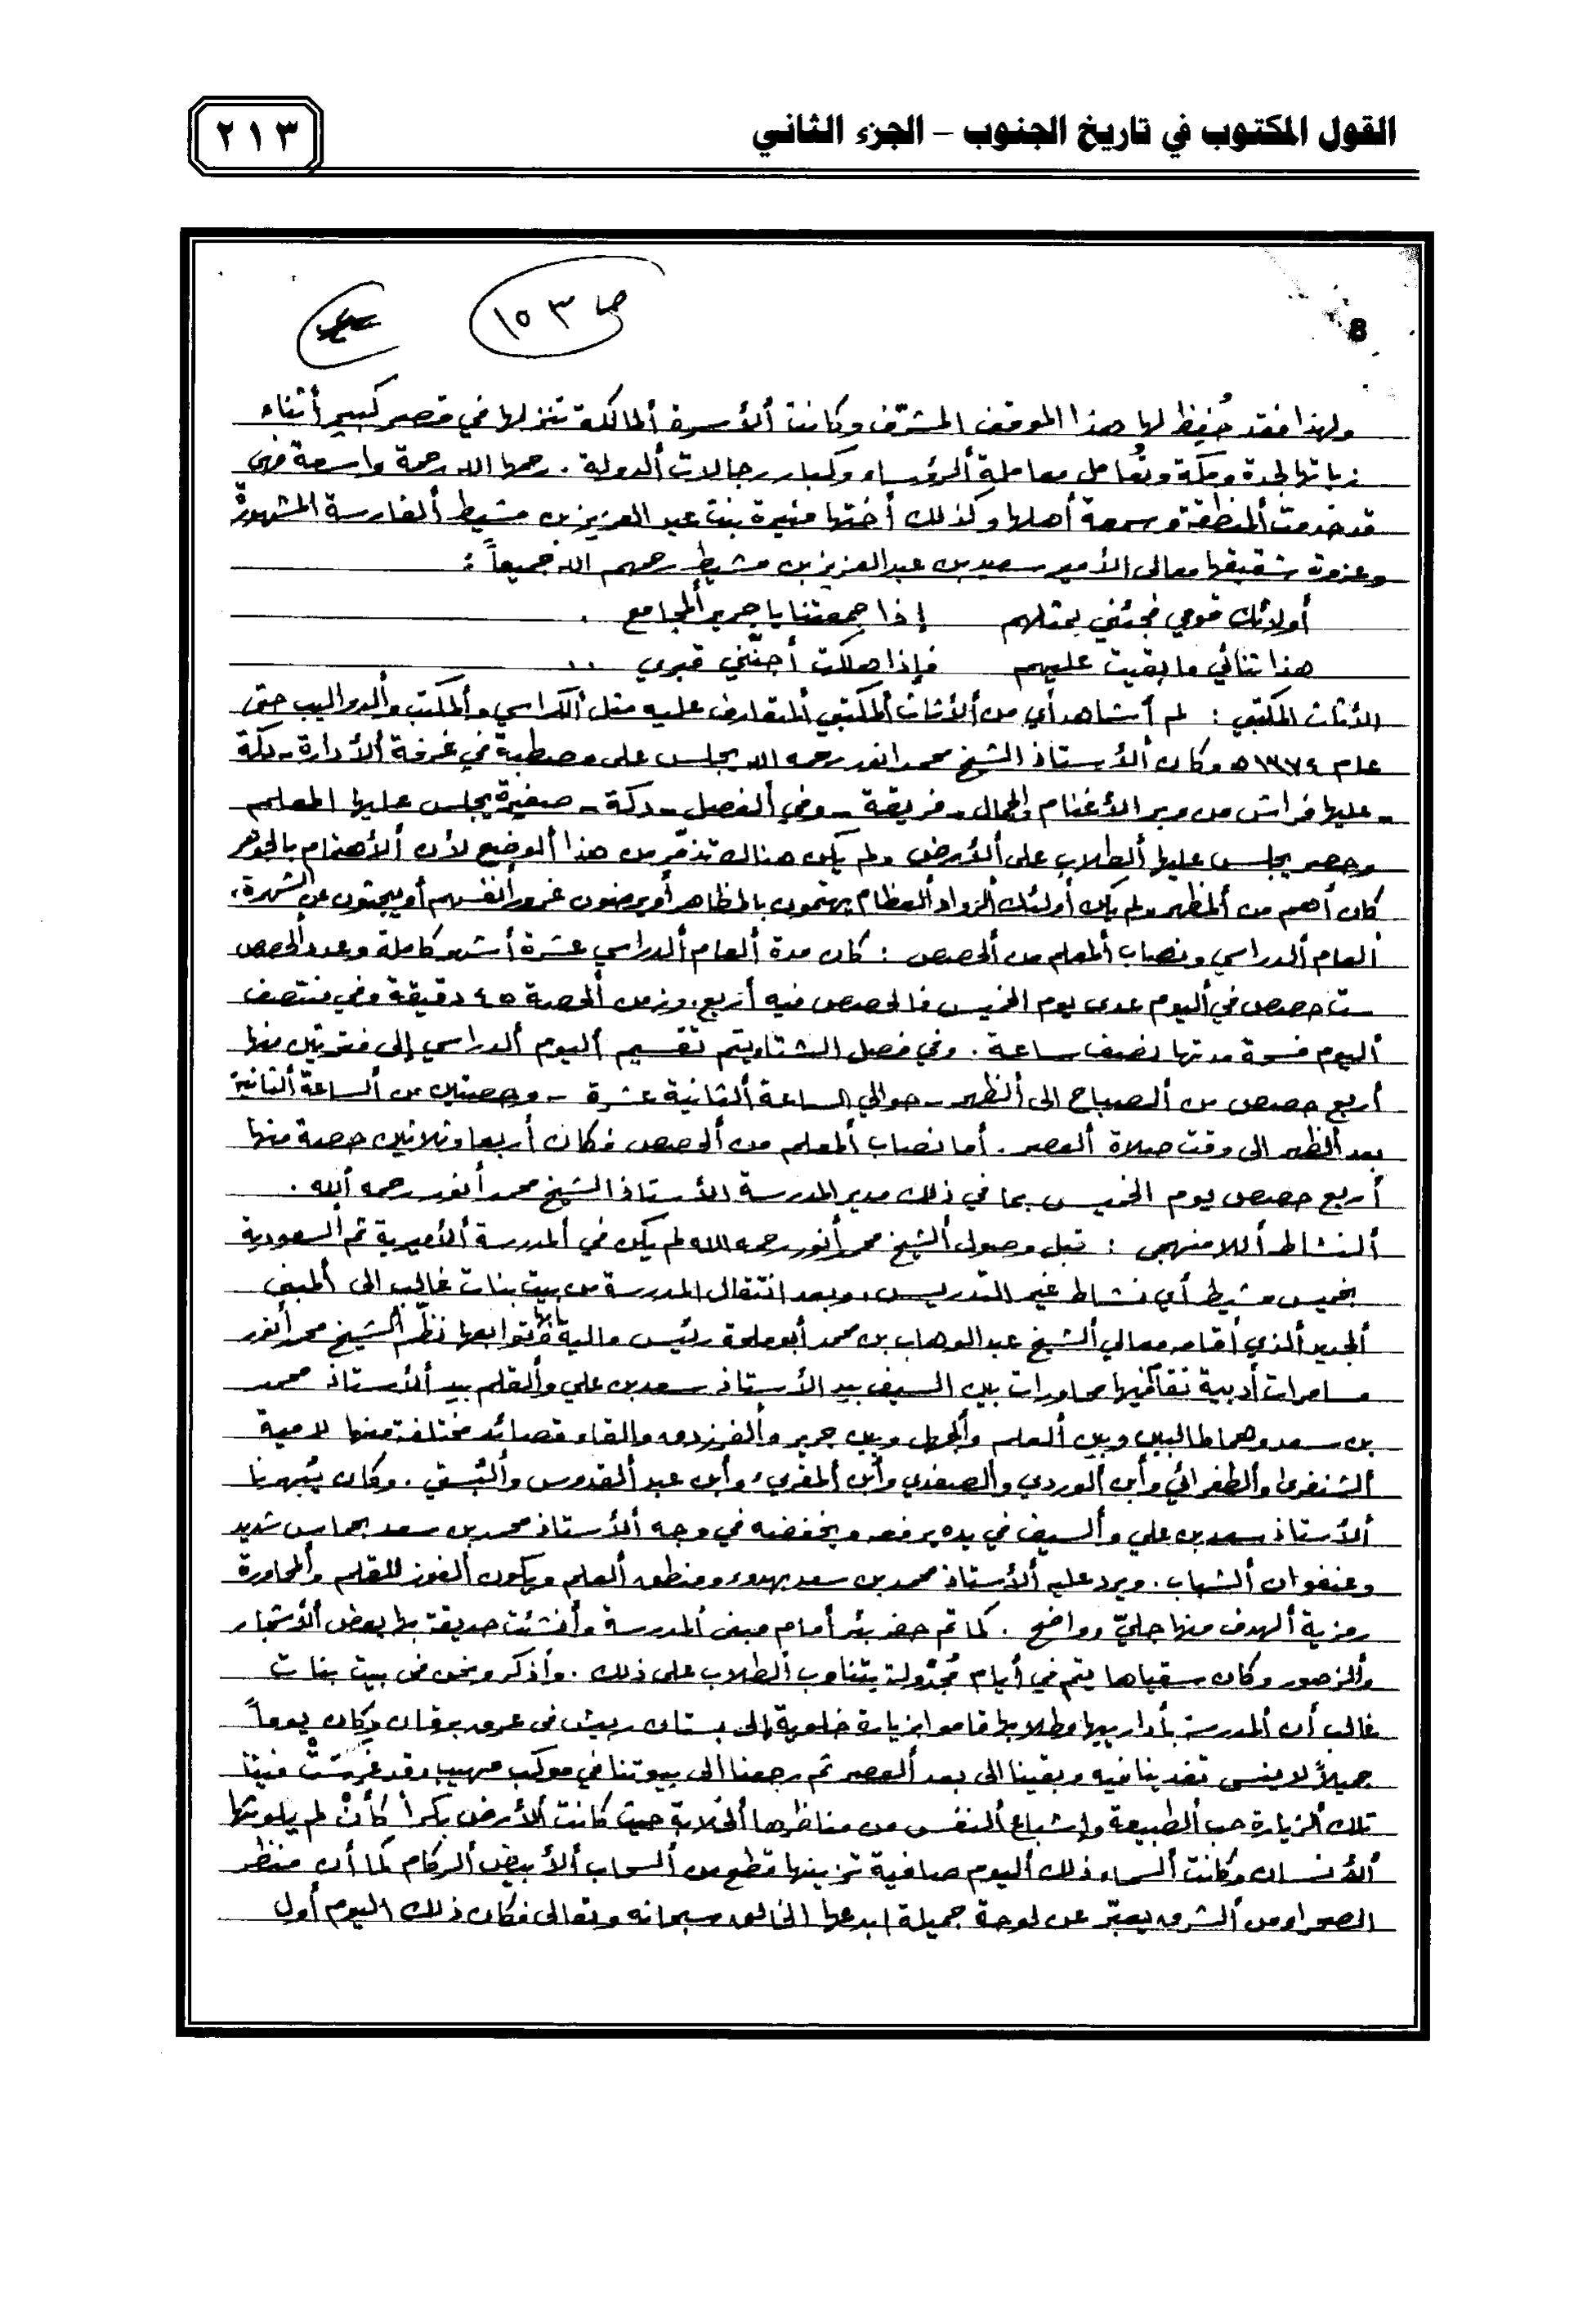 القول المكتوب في تاريخ الجنوب – الجزء الثاني
٢١٣
8
ص ١٥٣
ولهذا فقد حُفِظ لها هذا الموقف المشرّف وكانت ألأسرة ألمالكة تنزلها في قصر كبير أثناء
زياتها لجدة ومكة وتُعامل معاملة ألرؤساء وكبار رجالات ألدولة . رحمها الله رحمة واسعة فهى
قد خدمت ألمنطقة وسمعة أهلها وكذلك أختها منيرة بنت عبد العزيز بن مشيط ألفارسة المشهورة
وعزوة شقيقها معالى الأمير سعيد بن عبد العزيز بن مشيط رحمهم الله جميعاً :
أولائك قومي فجئني بمثلهم إذا جمعتنا يا جرير ألمجامع .
هذا ثنائي ما بقيت عليهم فإذا هلكت أجنّني قبري ..
الأثاث المكتبي : لم أشاهد أي من ألأثاث ألمكتبي ألمتعارف عليه مثل ألكراسي وألمكتب وألدواليب حتى
عام ١٣٧٤ه وكان ألأستاذ الشيخ محمد انور رحمه الله يجلس على مصطبة في غرفة ألأدارة - دكة
- عليها فراش من وبر الأغنام والجمال - فريقة - وفي ألفصل - دكة - صغيرة يجلس عليها المعلم
وحصر يجلس عليها ألطلاب على ألأرض ولم يكن هناك تذمّر من هذا ألوضع لأن ألأهتمام بالجوهر
كان أهم من ألمظهر ولم يكن أولئك ألرواد ألعظام يهتمون بالمظاهر أو يرضون غرور أنفسهم أو يبحثون عن ألشهرة .
ألعام ألدراسي ونصاب ألمعلم من ألحصص : كان مدة ألعام ألدراسي عشرة أشهر كاملة وعدد ألحصص
ست حصص في أليوم عدى يوم الخميس فالحصص فيه أربع . وزمن ألحصة ٤٥ دقيقة وفي منتصف
أليوم فسحة مدتها نصف ساعة . وفي فصل الشتاء يتم تقسيم أليوم ألدراسي إلى فترتين منها
أربع حصص من ألصباح الى ألظهر - حوالي الساعة ألثانية عشرة - وحصتين من ألساعة ألثانية
بعد ألظهر الى وقت صلاة ألعصر . أما نصاب ألمعلم من ألحصص فكان أربعا وثلاثين حصة منها
أربع حصص يوم الخميس بما في ذلك مدير المدرسة الأستاذ الشيخ محمد أنور رحمه ألله .
ألنشاط أللامنهجي : قبل وصول ألشيخ محمد أنور رحمه الله لم يكن في ألمدرسة ألأميرية ثم ألسعودية
بخميس مشيط أي نشاط غير التدريس . وبعد انتقال المدرسة من بيت بنات غالب الى ألمبنى
ألجديد ألذي أقامه معالي ألشيخ عبد الوهاب بن محمد أبو ملحة رئيس مالية أبها وتوابعها نظّم ألشيخ محمد أنور
مسامرات أدبية نقام فيها محاورات بين السيف بيد الأستاذ سعد بن علي وألقلم بيد ألأستاذ محمد
بن سعد وهما طالبين وبين ألعلم وألجهل وبين جرير وألفرزدق والقاء قصائد مختلفة منها لامية
ألشنفرى وألطغرائي وأبن ألوردي وألصفدي وأبن ألمقريء وأبن عبد ألقدوس وألبستي . وكان يُبهرنا
ألأستاذ سعد بن علي وألسيف في يده يرفعه ويخفضه في وجه ألأستاذ محمد بن سعد بحماس شديد
وعنفوان ألشباب . ويرد عليه ألأستاذ محمد بن سعد بهدوء ومنطق ألعلم ويكون ألفوز للقلم وألمحاورة
رمزية ألهدف منها جليّ وواضح . كما تم حفر بئر أمام مبنى ألمدرسة وأنشئت حديقة بها بعض ألأشجار
وألزهور وكان سقياها يتم في أيام مُجدْولة يتناوب ألطلاب على ذلك . وأذكر ونحن في بيت بنات
غالب أن ألمدرسة بأدارييها وطلابها قاموا بزيارة خلوية إلى بستان ريش في عرق برقان وكان يوماً
جميلاً لا ينسى تغدينا فيه وبقينا الى بعد ألعصر ثم رجعنا الى بيوتنا في موكب مهيب وقد غرست فينا
تلك ألزيارة حب ألطبيعة وإشباع ألنفس من مناظرها ألخلابة حيث كانت ألأرض بكراً كأنْ لم يلوثها
ألأنسان وكانت ألسماء ذلك أليوم صافية تزينها قطع من ألسحاب ألأبيض ألركام كما أن منظر
الصحراء من ألشرق يعبّر عن لوحة جميلة ابدعها الخالق سبحانه وتعالى فكان ذلك اليوم أول